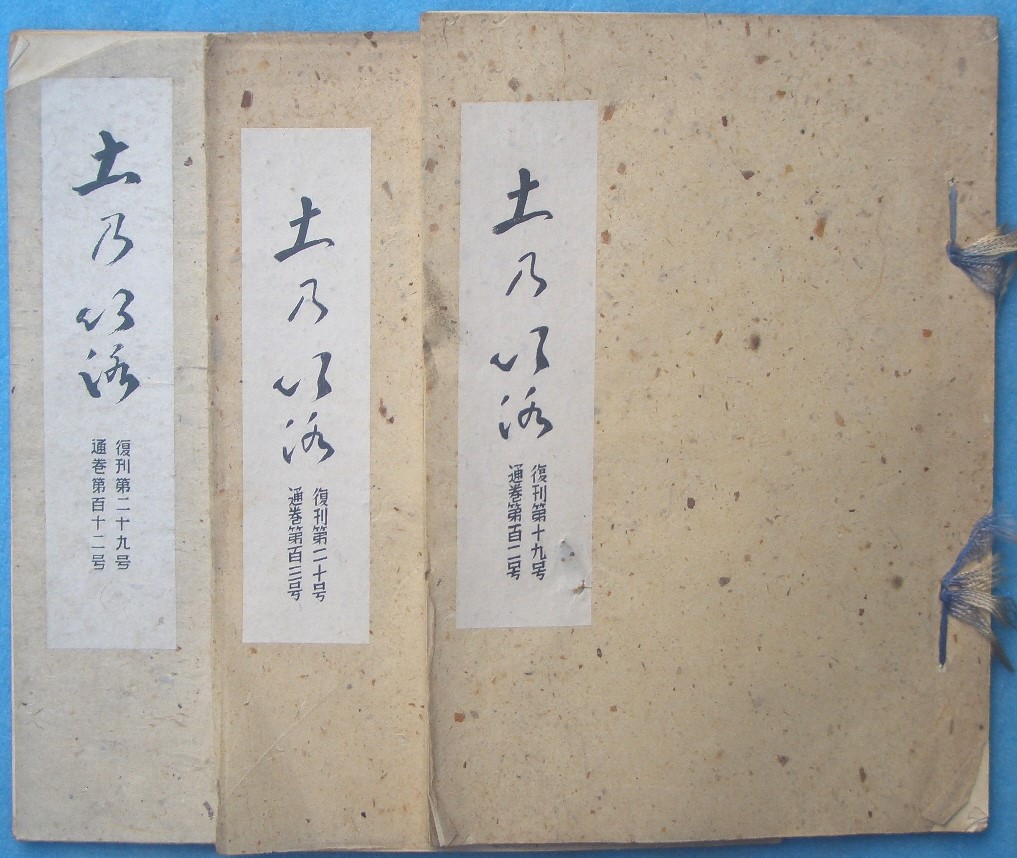 土乃以洛
復刊第十九号
通巻第百二号
土乃以洛
復刊第二十号
通巻第百三号
土乃以洛
復刊第二十九号
通巻第百十二号